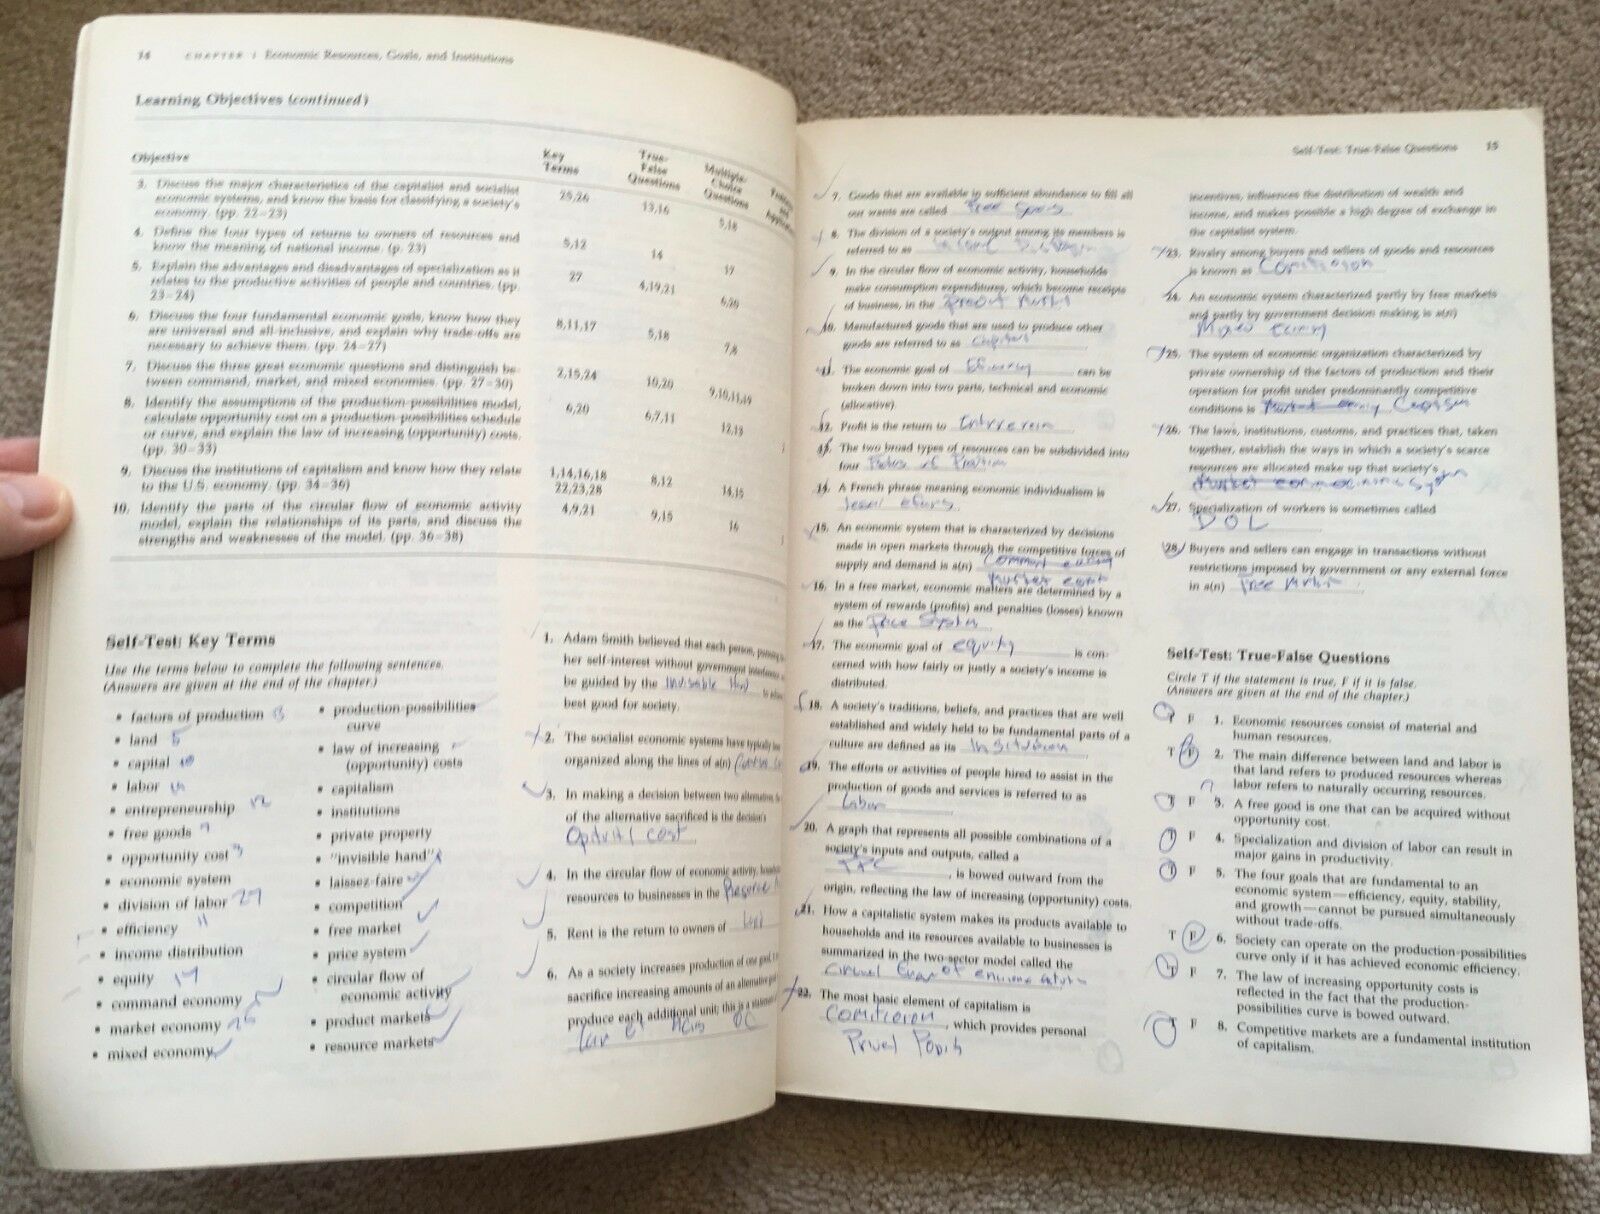 14 CHAPTER 1 Economic Resources, Goals, and Institutions
Learning Objectives (continued)
Objective
Key
Terms
True-
False
Questions
Multiple-
Choice
Questions
3. Discuss the major characteristics of the capitalist and socialist
economic systems, and know the basis for classifying a society's
economy. (pp. 22–23)
25,26
13,16
5,18
4. Define the four types of returns to owners of resources and
know the meaning of national income. (p. 23)
5,12
14
17
5. Explain the advantages and disadvantages of specialization as it
relates to the productive activities of people and countries. (pp.
23–24)
27
4,19,21
6,20
6. Discuss the four fundamental economic goals, know how they
are universal and all-inclusive, and explain why trade-offs are
necessary to achieve them. (pp. 24–27)
8,11,17
5,18
7,8
7. Discuss the three great economic questions and distinguish be-
tween command, market, and mixed economies. (pp. 27–30)
2,15,24
10,20
9,10,11,19
8. Identify the assumptions of the production-possibilities model,
calculate opportunity cost on a production-possibilities schedule
or curve, and explain the law of increasing (opportunity) costs.
(pp. 30–33)
6,20
6,7,11
12,13
9. Discuss the institutions of capitalism and know how they relate
to the U.S. economy. (pp. 34–36)
1,14,16,18
22,23,28
8,12
14,15
10. Identify the parts of the circular flow of economic activity
model, explain the relationships of its parts, and discuss the
strengths and weaknesses of the model. (pp. 36–38)
4,9,21
9,15
16
Self-Test: Key Terms
Use the terms below to complete the following sentences.
(Answers are given at the end of the chapter.)
• factors of production 13
• land 5
• capital 10
• labor
• entrepreneurship 12
• free goods 7
• opportunity cost 3
• economic system
• division of labor 27
• efficiency 11
• income distribution
• equity 17
• command economy
• market economy
• mixed economy
• production-possibilities
curve
• law of increasing
(opportunity) costs
• capitalism
• institutions
• private property
• "invisible hand"
• laissez-faire
• competition
• free market
• price system
• circular flow of
economic activity
• product markets
• resource markets
1. Adam Smith believed that each person,
her self-interest without government
be guided by the Invisible Hand
best good for society.
2. The socialist economic systems have typically
organized along the lines of a(n)
3. In making a decision between two alternatives,
of the alternative sacrificed is the decision's
cost
4. In the circular flow of economic activity,
resources to businesses in the
5. Rent is the return to owners of Land
6. As a society increases production of one
sacrifice increasing amounts of an alternative
produce each additional unit; this is a statement
OC
Self-Test: True-False Questions 15
7. Goods that are available in sufficient abundance to fill all
our wants are called Free
8. The division of a society's output among its members is
referred to as
9. In the circular flow of economic activity, households
make consumption expenditures, which become receipts
of business, in the
10. Manufactured goods that are used to produce other
goods are referred to as
11. The economic goal of can be
broken down into two parts, technical and economic
(allocative).
12. Profit is the return to
13. The two broad types of resources can be subdivided into
four
14. A French phrase meaning economic individualism is
15. An economic system that is characterized by decisions
made in open markets through the competitive forces of
supply and demand is a(n)
Market
16. In a free market, economic matters are determined by a
system of rewards (profits) and penalties (losses) known
as the Price System
17. The economic goal of equity is con-
cerned with how fairly or justly a society's income is
distributed.
18. A society's traditions, beliefs, and practices that are well
established and widely held to be fundamental parts of a
culture are defined as its
19. The efforts or activities of people hired to assist in the
production of goods and services is referred to as
Labor
20. A graph that represents all possible combinations of a
society's inputs and outputs, called a
PPC, is bowed outward from the
origin, reflecting the law of increasing (opportunity) costs.
21. How a capitalistic system makes its products available to
households and its resources available to businesses is
summarized in the two-sector model called the
22. The most basic element of capitalism is
, which provides personal
incentives, influences the distribution of wealth and
income, and makes possible a high degree of exchange in
the capitalist system.
23. Rivalry among buyers and sellers of goods and resources
is known as
24. An economic system characterized partly by free markets
and partly by government decision making is a(n)
25. The system of economic organization characterized by
private ownership of the factors of production and their
operation for profit under predominantly competitive
conditions is
26. The laws, institutions, customs, and practices that, taken
together, establish the ways in which a society's scarce
resources are allocated make up that society's
27. Specialization of workers is sometimes called
DOL
28. Buyers and sellers can engage in transactions without
restrictions imposed by government or any external force
in a(n) Free
Self-Test: True-False Questions
Circle T if the statement is true, F if it is false.
(Answers are given at the end of the chapter.)
T F 1. Economic resources consist of material and
human resources.
T F 2. The main difference between land and labor is
that land refers to produced resources whereas
labor refers to naturally occurring resources.
T F 3. A free good is one that can be acquired without
opportunity cost.
T F 4. Specialization and division of labor can result in
major gains in productivity.
T F 5. The four goals that are fundamental to an
economic system—efficiency, equity, stability,
and growth—cannot be pursued simultaneously
without trade-offs.
T F 6. Society can operate on the production-possibilities
curve only if it has achieved economic efficiency.
T F 7. The law of increasing opportunity costs is
reflected in the fact that the production-
possibilities curve is bowed outward.
T F 8. Competitive markets are a fundamental institution
of capitalism.